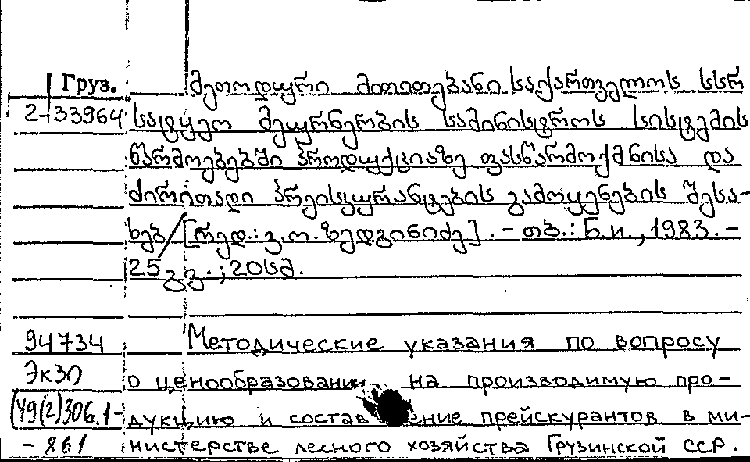 Груз. მეთოდური მითითებანი საქართველოს სსრ
2-33964 სატყეო მეურნეობის სამინისტროს სისტემის
წარმოებებში პროდუქციაზე ფასწარმოქმნისა და
ძირითადი პრეისკურანტების გამოყენების შესა-
ხებ [რედ.: გ.ო.ზედგინიძე]. - თბ.: Б.и., 1983. -
25 გვ.; 20სმ.
94734 Методические указания по вопросу
Экз о ценообразовании на производимую про-
(У9(2)306.1- дукцию и состав ение прейскурантов в ми-
- 861 нистерстве лесного хозяйства Грузинской ССР.